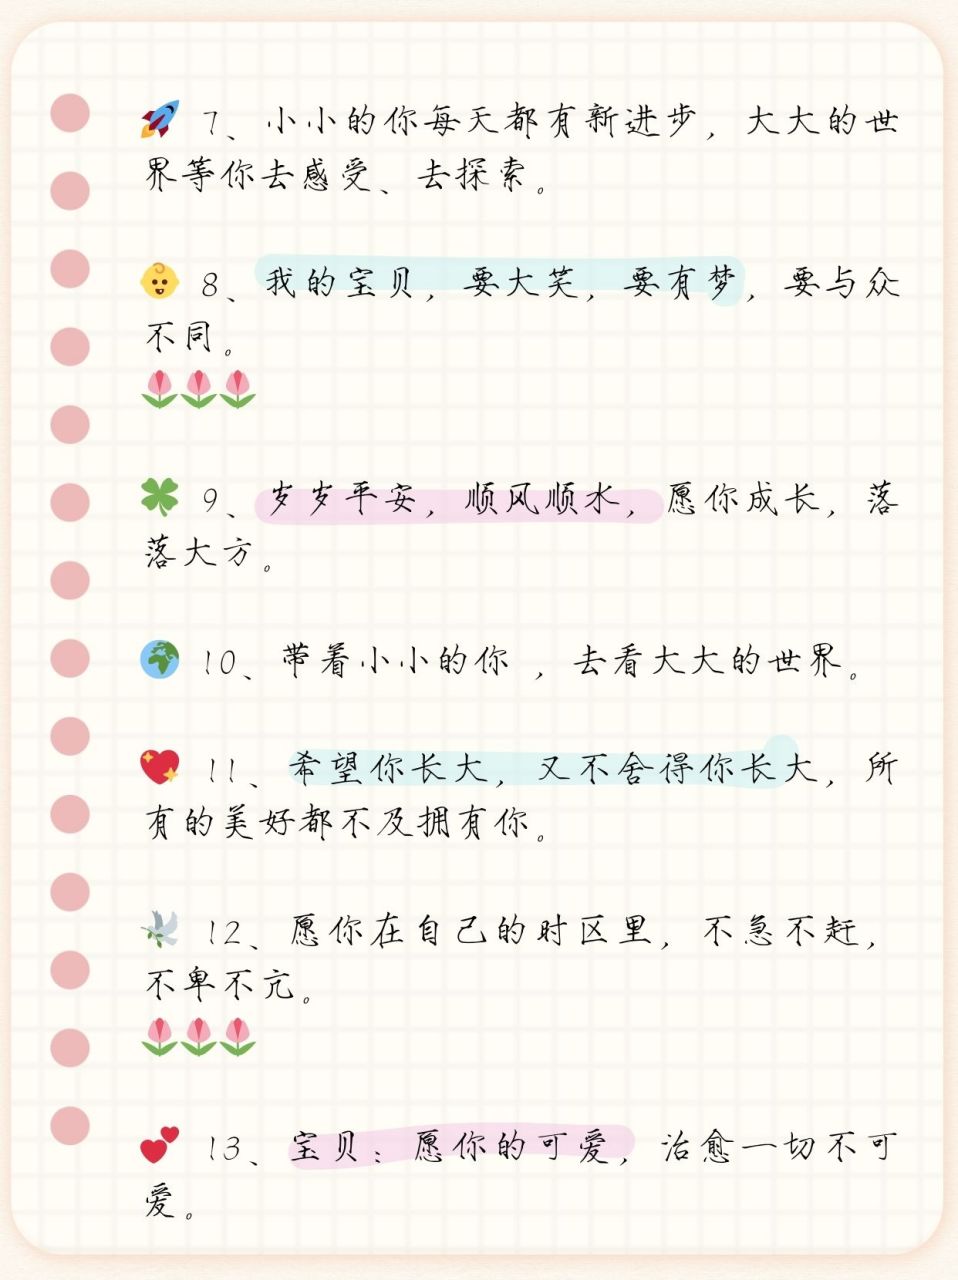 🚀 7、小小的你每天都有新进步，大大的世
界等你去感受、去探索。
👶 8、我的宝贝，要大笑，要有梦，要与众
不同。
🌷🌷🌷
🍀 9、岁岁平安，顺风顺水，愿你成长，落
落大方。
🌍 10、带着小小的你 ，去看大大的世界。
💖 11、希望你长大，又不舍得你长大，所
有的美好都不及拥有你。
🕊️ 12、愿你在自己的时区里，不急不赶，
不卑不亢。
🌷🌷🌷
💕 13、宝贝：愿你的可爱，治愈一切不可
爱。